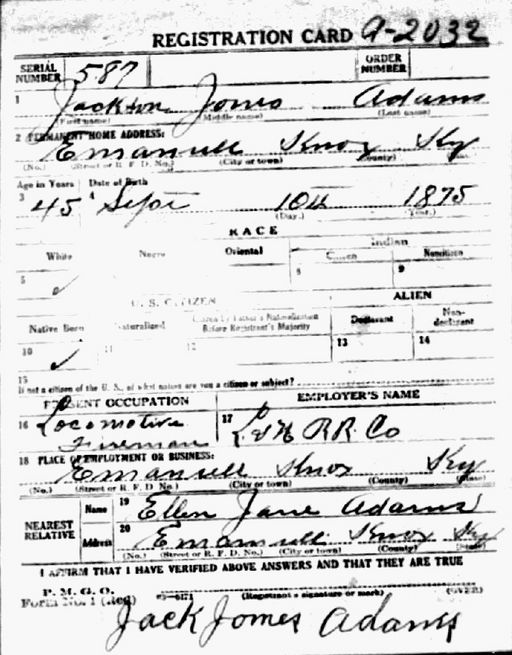 REGISTRATION CARD A-2032
SERIAL NUMBER 587 ORDER NUMBER
1 Jackson Jones Adams
(First name) (Middle name) (Last name)
2 PERMANENT HOME ADDRESS:
Emanuell Knox Ky
(No.) (Street or R. F. D. No.) (City or town) (County)
Age in Years Date of Birth
3 45 4 Sepr 10th 1875
(Day.) (Year.)
RACE
White Negro Oriental Indian
Citizen Noncitizen
5 ✓ 8 9
U. S. CITIZEN ALIEN
Native Born Naturalized Citizen by Father's Naturalization Before Registrant's Majority Declarant Non-declarant
10 ✓ 11 12 13 14
15
If not a citizen of the U. S., of what nation are you a citizen or subject?
PRESENT OCCUPATION EMPLOYER'S NAME
16 Locomotive Fireman 17 L & N RR Co
18 PLACE OF EMPLOYMENT OR BUSINESS:
Emanuell Knox Ky
(No.) (Street or R. F. D. No.) (City or town) (County) (State)
NEAREST RELATIVE Name 19 Ellen Jane Adams
Address 20 Emanuell Knox Ky
(No.) (Street or R. F. D. No.) (City or town) (County) (State)
I AFFIRM THAT I HAVE VERIFIED ABOVE ANSWERS AND THAT THEY ARE TRUE
P. M. G. O.
Form No. 1 (Red) (Registrant's signature or mark) (OVER)
Jack Jones Adams